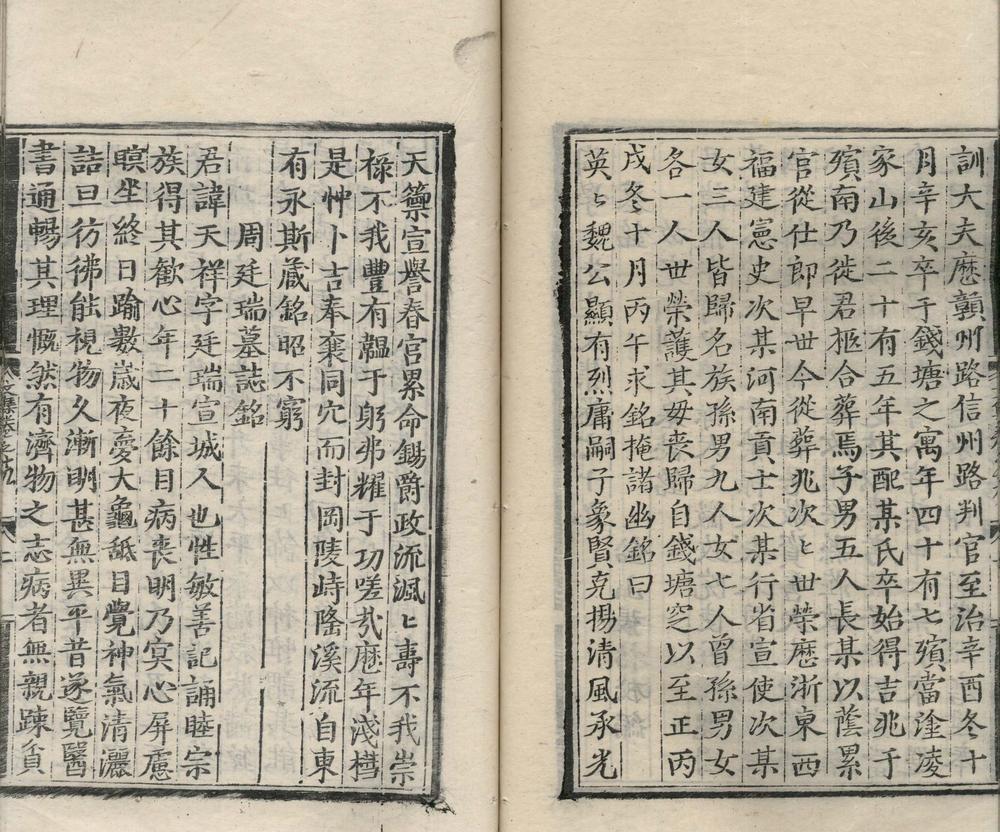 訓大夫歷贑州路信州路判官至治辛酉冬十
月辛亥卒于錢塘之寓年四十有七殯當塗凌
家山後二十有五年其配某氏卒始得吉兆于
殯南乃徙君柩合葬焉子男五人長某以蔭累
官從仕郎早世今從葬兆次〻世榮歷浙東西
福建憲史次某河南貢士次某行省宣使次某
女三人皆歸名族孫男九人女七人曾孫男女
各一人世榮護其母丧歸自錢塘窆以至正丙
戌冬十月丙午求銘掩諸幽銘曰
英〻魏公顯有烈庸嗣子象賢克揚清風承光
天䉡宣譽春官累命錫爵政流渢〻壽不我崇
禄不我豐有韞于躬弗耀于功嗟㢤歷年淺檆
是忰卜吉奉襄同穴而封岡陵峙隆溪流自東
有永斯藏銘昭不窮
周廷瑞墓誌銘
君諱天祥字廷瑞宣城人也性敏善記誦睦宗
族得其歡心年二十餘目病丧明乃寘心屏慮
瞑坐終日踰數歲夜夣大龜舐目覺神氣清灑
詰旦彷彿能視物久漸明甚無異平昔遂覽醫
書通暢其理慨然有濟物之志病者無親踈貟